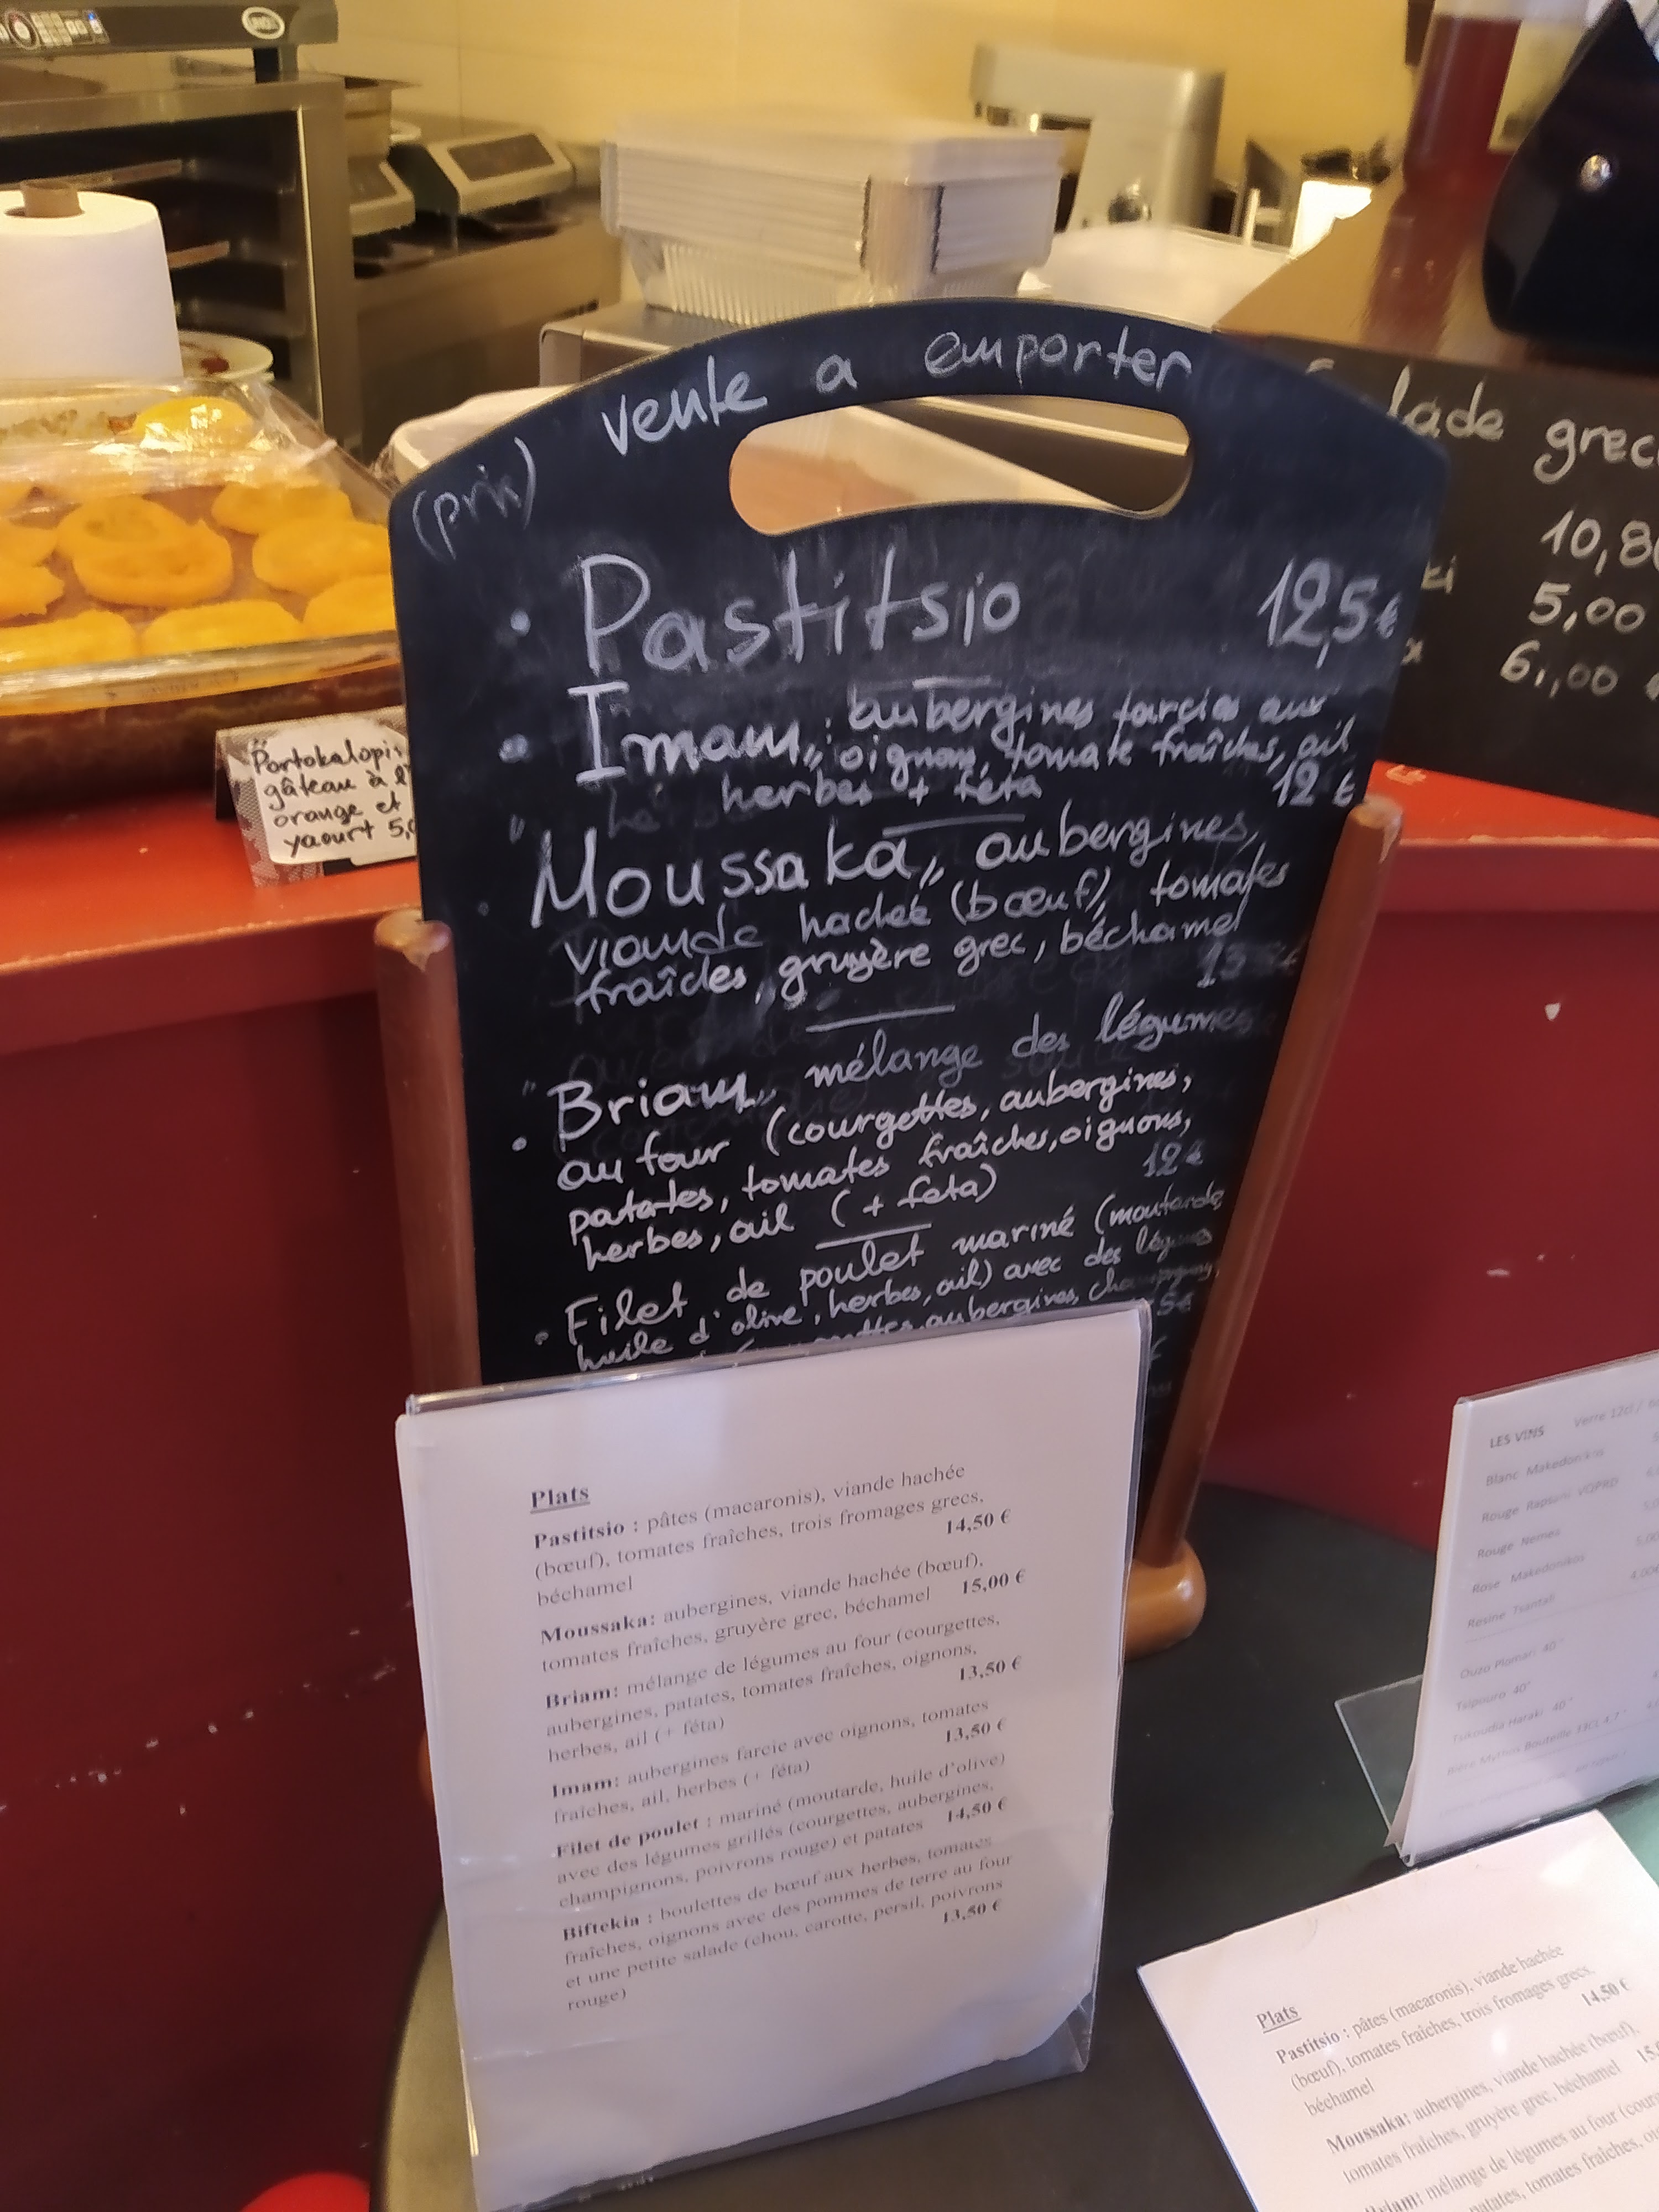 vente a emporter
(prix)
• Pastitsio 12,5€
• Imam,, : aubergines farcies aux
oignon, tomate fraîches, ail
herbes + féta 12 €
Moussaka,, aubergines,
viande hachée (bœuf), tomates
fraîches, gruyère grec, béchamel
• Briam,, mélange des légumes
au four (courgettes, aubergines,
patates, tomates fraîches, oignons,
herbes, ail (+ feta) 12€
• Filet de poulet mariné (moutarde,
huile d'olive, herbes, ail) avec des légumes
aubergines,
grec
10,80
5,00
6,00
gâteau à l'
orange et
yaourt
Plats
Pastitsio : pâtes (macaronis), viande hachée
(bœuf), tomates fraîches, trois fromages grecs,
béchamel 14,50 €
Moussaka: aubergines, viande hachée (bœuf),
tomates fraîches, gruyère grec, béchamel 15,00 €
Briam: mélange de légumes au four (courgettes,
aubergines, patates, tomates fraîches, oignons,
herbes, ail (+ féta) 13,50 €
Imam: aubergines farcie avec oignons, tomates
fraîches, ail, herbes (+ féta) 13,50 €
Filet de poulet : mariné (moutarde, huile d'olive)
avec des légumes grillés (courgettes, aubergines,
champignons, poivrons rouge) et patates 14,50 €
Biftekia : boulettes de bœuf aux herbes, tomates
fraîches, oignons avec des pommes de terre au four
et une petite salade (chou, carotte, persil, poivrons
rouge) 13,50 €
LES VINS Verre 12cl /
Blanc Makedonikos
Rouge Rapsani VQPRD
Rouge Nemea
Rose Makedonikos
Resine Tsantali
Ouzo Plomari 40°
Tsipouro 40°
Tsikoudia Haraki 40°
Plats
Pastitsio : pâtes (macaronis), viande hachée
(bœuf), tomates fraîches, trois fromages grecs,
béchamel 14,50 €
Moussaka: aubergines, viande hachée (bœuf),
tomates fraîches, gruyère grec, béchamel
mélange de légumes au four
tomates fraîches,